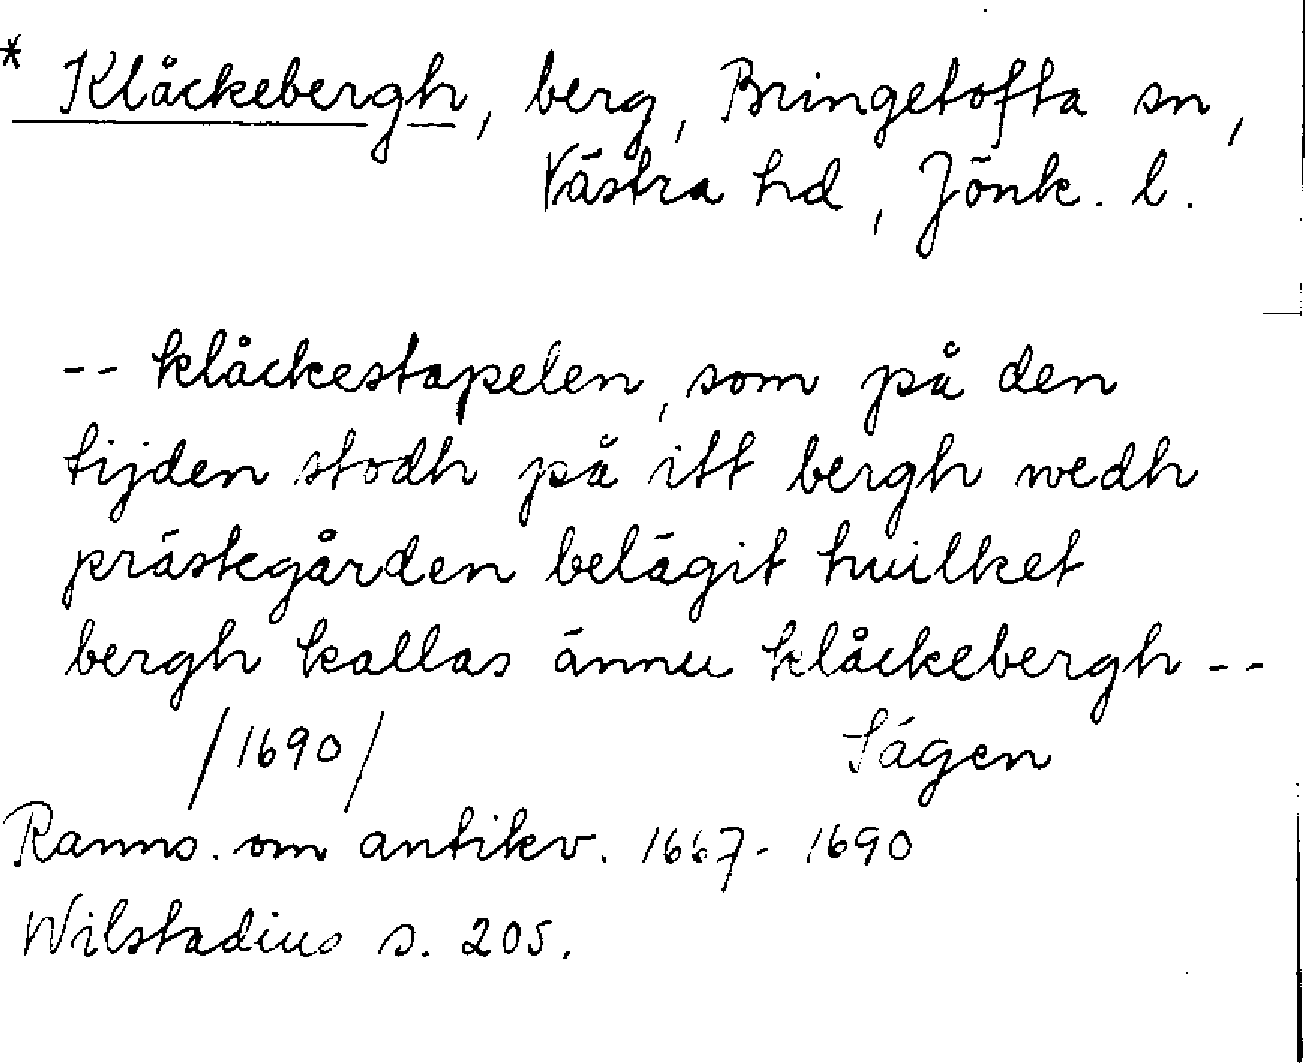 * Klåckebergh, berg, Bringetofta sn,
Västra hd, Jönk. l.
-- klåckestapelen, som på den
tijden stodh på itt bergh wedh
prästegården belägit huilket
bergh kallas ännu klåckebergh --
/1690/ Sägen
Ranns. om antikv. 1667-1690
Wilstadius s. 205.